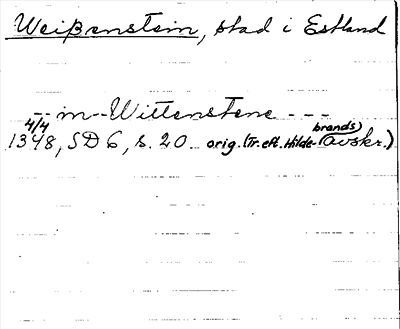 Weißenstein, stad i Estland
-- in -- Wittenstene - - -
4/4
1348, SD 6, s. 20 orig. (Tr. eft. Hilde-
brands) Avskr.)